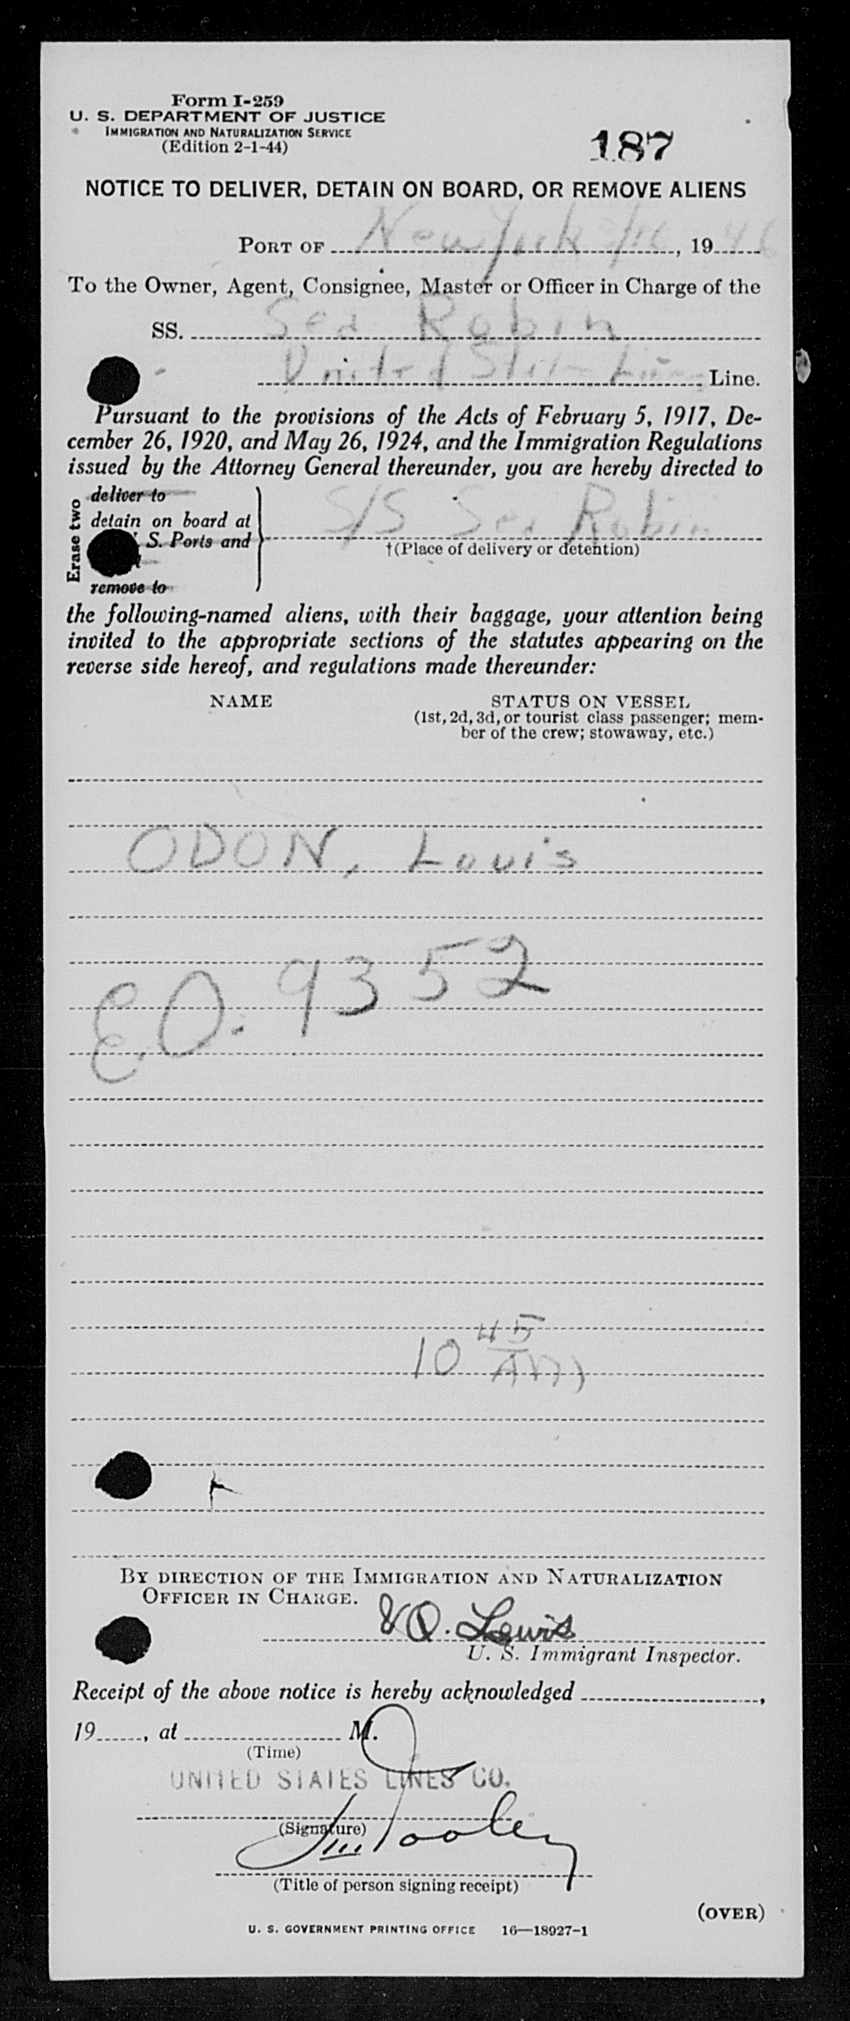 Form I-259
U. S. DEPARTMENT OF JUSTICE
IMMIGRATION AND NATURALIZATION SERVICE
(Edition 2-1-44)
187
NOTICE TO DELIVER, DETAIN ON BOARD, OR REMOVE ALIENS
PORT OF New York, 19 46
To the Owner, Agent, Consignee, Master or Officer in Charge of the
SS. Sea Robin
United States Lines Line.
Pursuant to the provisions of the Acts of February 5, 1917, De-
cember 26, 1920, and May 26, 1924, and the Immigration Regulations
issued by the Attorney General thereunder, you are hereby directed to
Erase two
deliver to
detain on board at S/S Sea Robin
S. Ports and
†(Place of delivery or detention)
remove to
the following-named aliens, with their baggage, your attention being
invited to the appropriate sections of the statutes appearing on the
reverse side hereof, and regulations made thereunder:
NAME STATUS ON VESSEL
(1st, 2d, 3d, or tourist class passenger; mem-
ber of the crew; stowaway, etc.)
ODON, Louis
E.O. 9352
10 45 AM
BY DIRECTION OF THE IMMIGRATION AND NATURALIZATION
OFFICER IN CHARGE.
Lewis
U. S. Immigrant Inspector.
Receipt of the above notice is hereby acknowledged ,
19 , at M.
(Time)
UNITED STATES LINES CO.
(Signature)
(Title of person signing receipt)
(OVER)
U. S. GOVERNMENT PRINTING OFFICE 16—18927-1